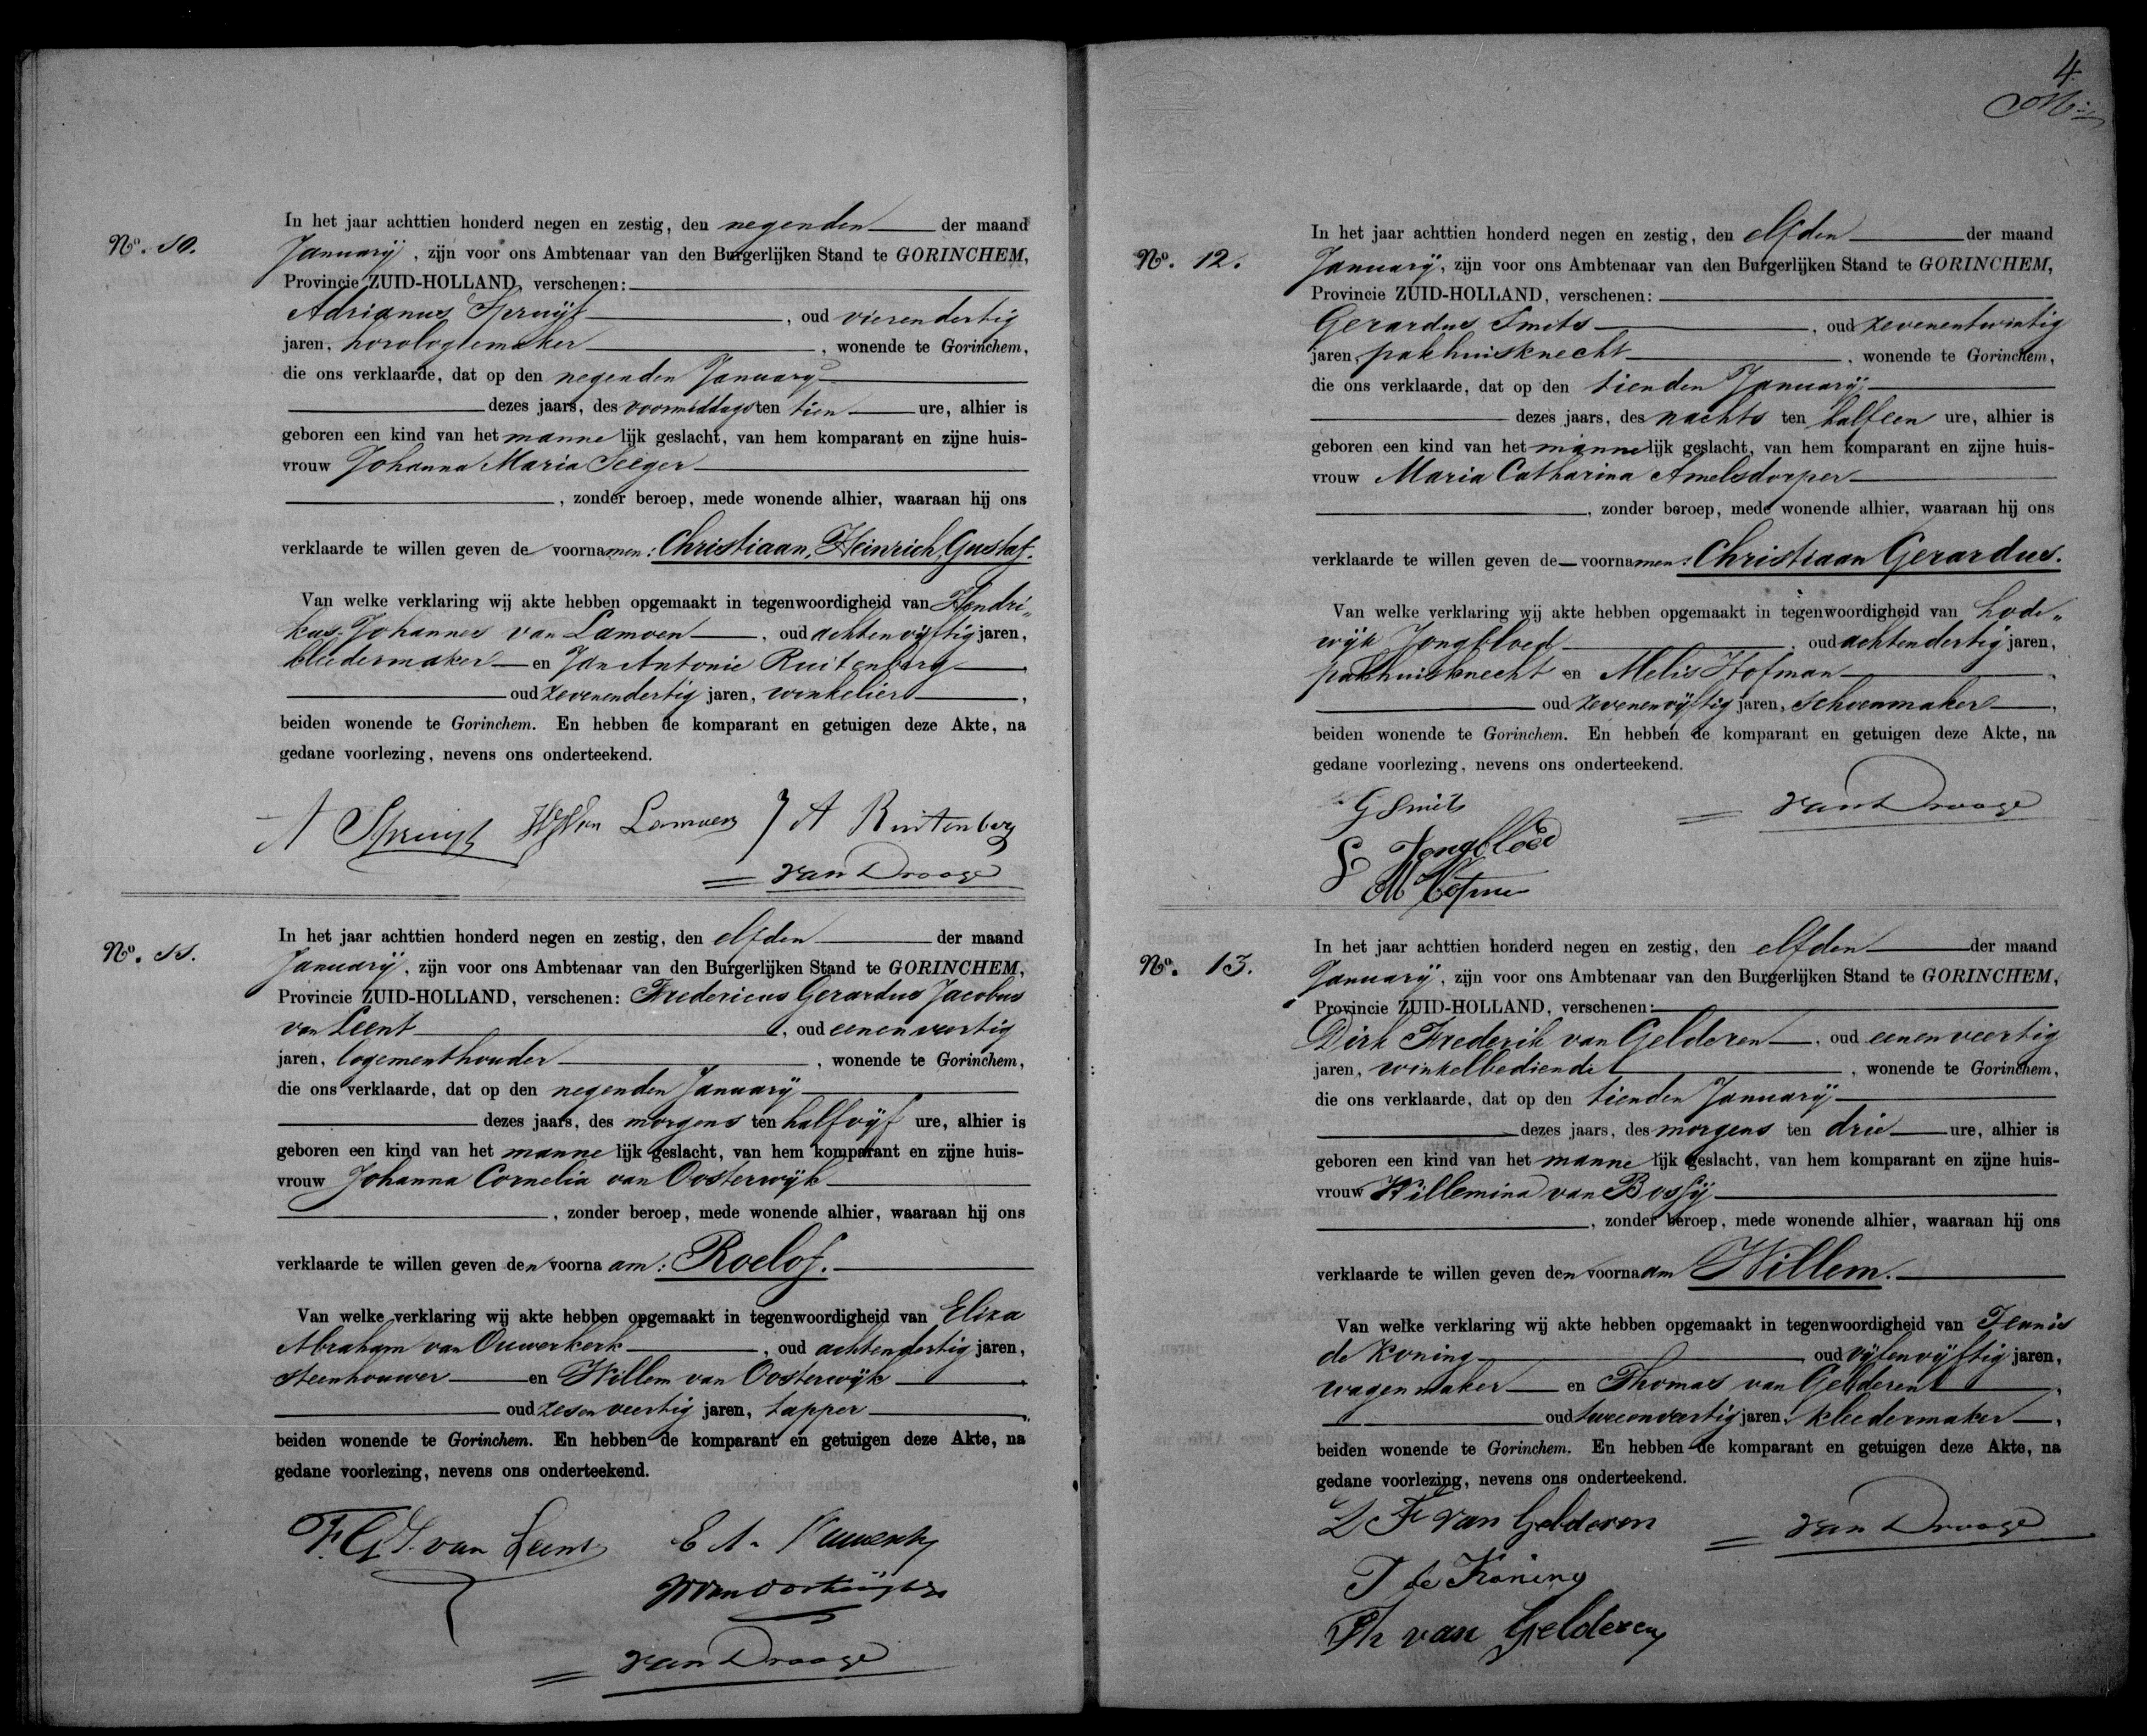 No. 10.
In het jaar achttien honderd negen en zestig, den negenden der maand
Januarij, zijn voor ons Ambtenaar van den Burgerlijken Stand te GORINCHEM,
Provincie ZUID-HOLLAND, verschenen:
Adrianus Spruijt, oud vierendertig
jaren, horologiemaker, wonende te Gorinchem,
die ons verklaarde, dat op den negenden Januarij
dezes jaars, des voormiddags ten tien ure, alhier is
geboren een kind van het mannelijk geslacht, van hem komparant en zijne huis-
vrouw Johanna Maria Seeger
, zonder beroep, mede wonende alhier, waaraan hij ons
verklaarde te willen geven de voornamen: Christiaan, Heinrich, Gustaf.
Van welke verklaring wij akte hebben opgemaakt in tegenwoordigheid van Hendri„
kus Johannes van Lamoen, oud achtenvijftig jaren,
kleedermaker en Jan Antonie Ruitenberg,
oud zevenendertig jaren, winkelier,
beiden wonende te Gorinchem. En hebben de komparant en getuigen deze Akte, na
gedane voorlezing, nevens ons onderteekend.
A Spruijt HJ van Lamoen J A Ruitenberg
van Drooge
No. 11.
In het jaar achttien honderd negen en zestig, den elfden der maand
Januarij, zijn voor ons Ambtenaar van den Burgerlijken Stand te GORINCHEM,
Provincie ZUID-HOLLAND, verschenen: Fredericus Gerardus Jacobus
van Leent, oud eenenveertig
jaren, logementhouder, wonende te Gorinchem,
die ons verklaarde, dat op den negenden Januarij
dezes jaars, des morgens ten halfvijf ure, alhier is
geboren een kind van het mannelijk geslacht, van hem komparant en zijne huis-
vrouw Johanna Cornelia van Oosterwijk
, zonder beroep, mede wonende alhier, waaraan hij ons
verklaarde te willen geven den voornaam: Roelof.
Van welke verklaring wij akte hebben opgemaakt in tegenwoordigheid van Eliza
Abraham van Ouwerkerk, oud achtendertig jaren,
steenhouwer en Willem van Oosterwijk,
oud zesenveertig jaren, tapper,
beiden wonende te Gorinchem. En hebben de komparant en getuigen deze Akte, na
gedane voorlezing, nevens ons onderteekend.
F. G J. van Leent E A
van Drooge
4
No. 12.
In het jaar achttien honderd negen en zestig, den elfden der maand
Januarij, zijn voor ons Ambtenaar van den Burgerlijken Stand te GORINCHEM,
Provincie ZUID-HOLLAND, verschenen:
Gerardus Smits, oud zevenentwintig
jaren, pakhuisknecht, wonende te Gorinchem,
die ons verklaarde, dat op den tienden Januarij
dezes jaars, des nachts ten halfeen ure, alhier is
geboren een kind van het mannelijk geslacht, van hem komparant en zijne huis-
vrouw Maria Catharina Amelsdorper
, zonder beroep, mede wonende alhier, waaraan hij ons
verklaarde te willen geven de voornamen: Christiaan Gerardus.
Van welke verklaring wij akte hebben opgemaakt in tegenwoordigheid van Lode„
wijk Jongbloed, oud achtendertig jaren,
pakhuisknecht en Melis Hofman,
oud zevenenvijftig jaren, schoenmaker,
beiden wonende te Gorinchem. En hebben de komparant en getuigen deze Akte, na
gedane voorlezing, nevens ons onderteekend.
G Smits van Drooge
L Jongbloed
M Hofman
No. 13.
In het jaar achttien honderd negen en zestig, den elfden der maand
Januarij, zijn voor ons Ambtenaar van den Burgerlijken Stand te GORINCHEM,
Provincie ZUID-HOLLAND, verschenen:
Dirk Frederik van Gelderen, oud eenenveertig
jaren, winkelbediende, wonende te Gorinchem,
die ons verklaarde, dat op den tienden Januarij
dezes jaars, des morgens ten drie ure, alhier is
geboren een kind van het mannelijk geslacht, van hem komparant en zijne huis-
vrouw Willemina van Bossij
, zonder beroep, mede wonende alhier, waaraan hij ons
verklaarde te willen geven den voornaam Willem.
Van welke verklaring wij akte hebben opgemaakt in tegenwoordigheid van
de Koning, oud vijfenvijftig jaren,
wagenmaker en Thomas van Gelderen,
oud tweeenveertig jaren, kleedermaker,
beiden wonende te Gorinchem. En hebben de komparant en getuigen deze Akte, na
gedane voorlezing, nevens ons onderteekend.
D F van Gelderen van Drooge
T de Koning
Th van Gelderen